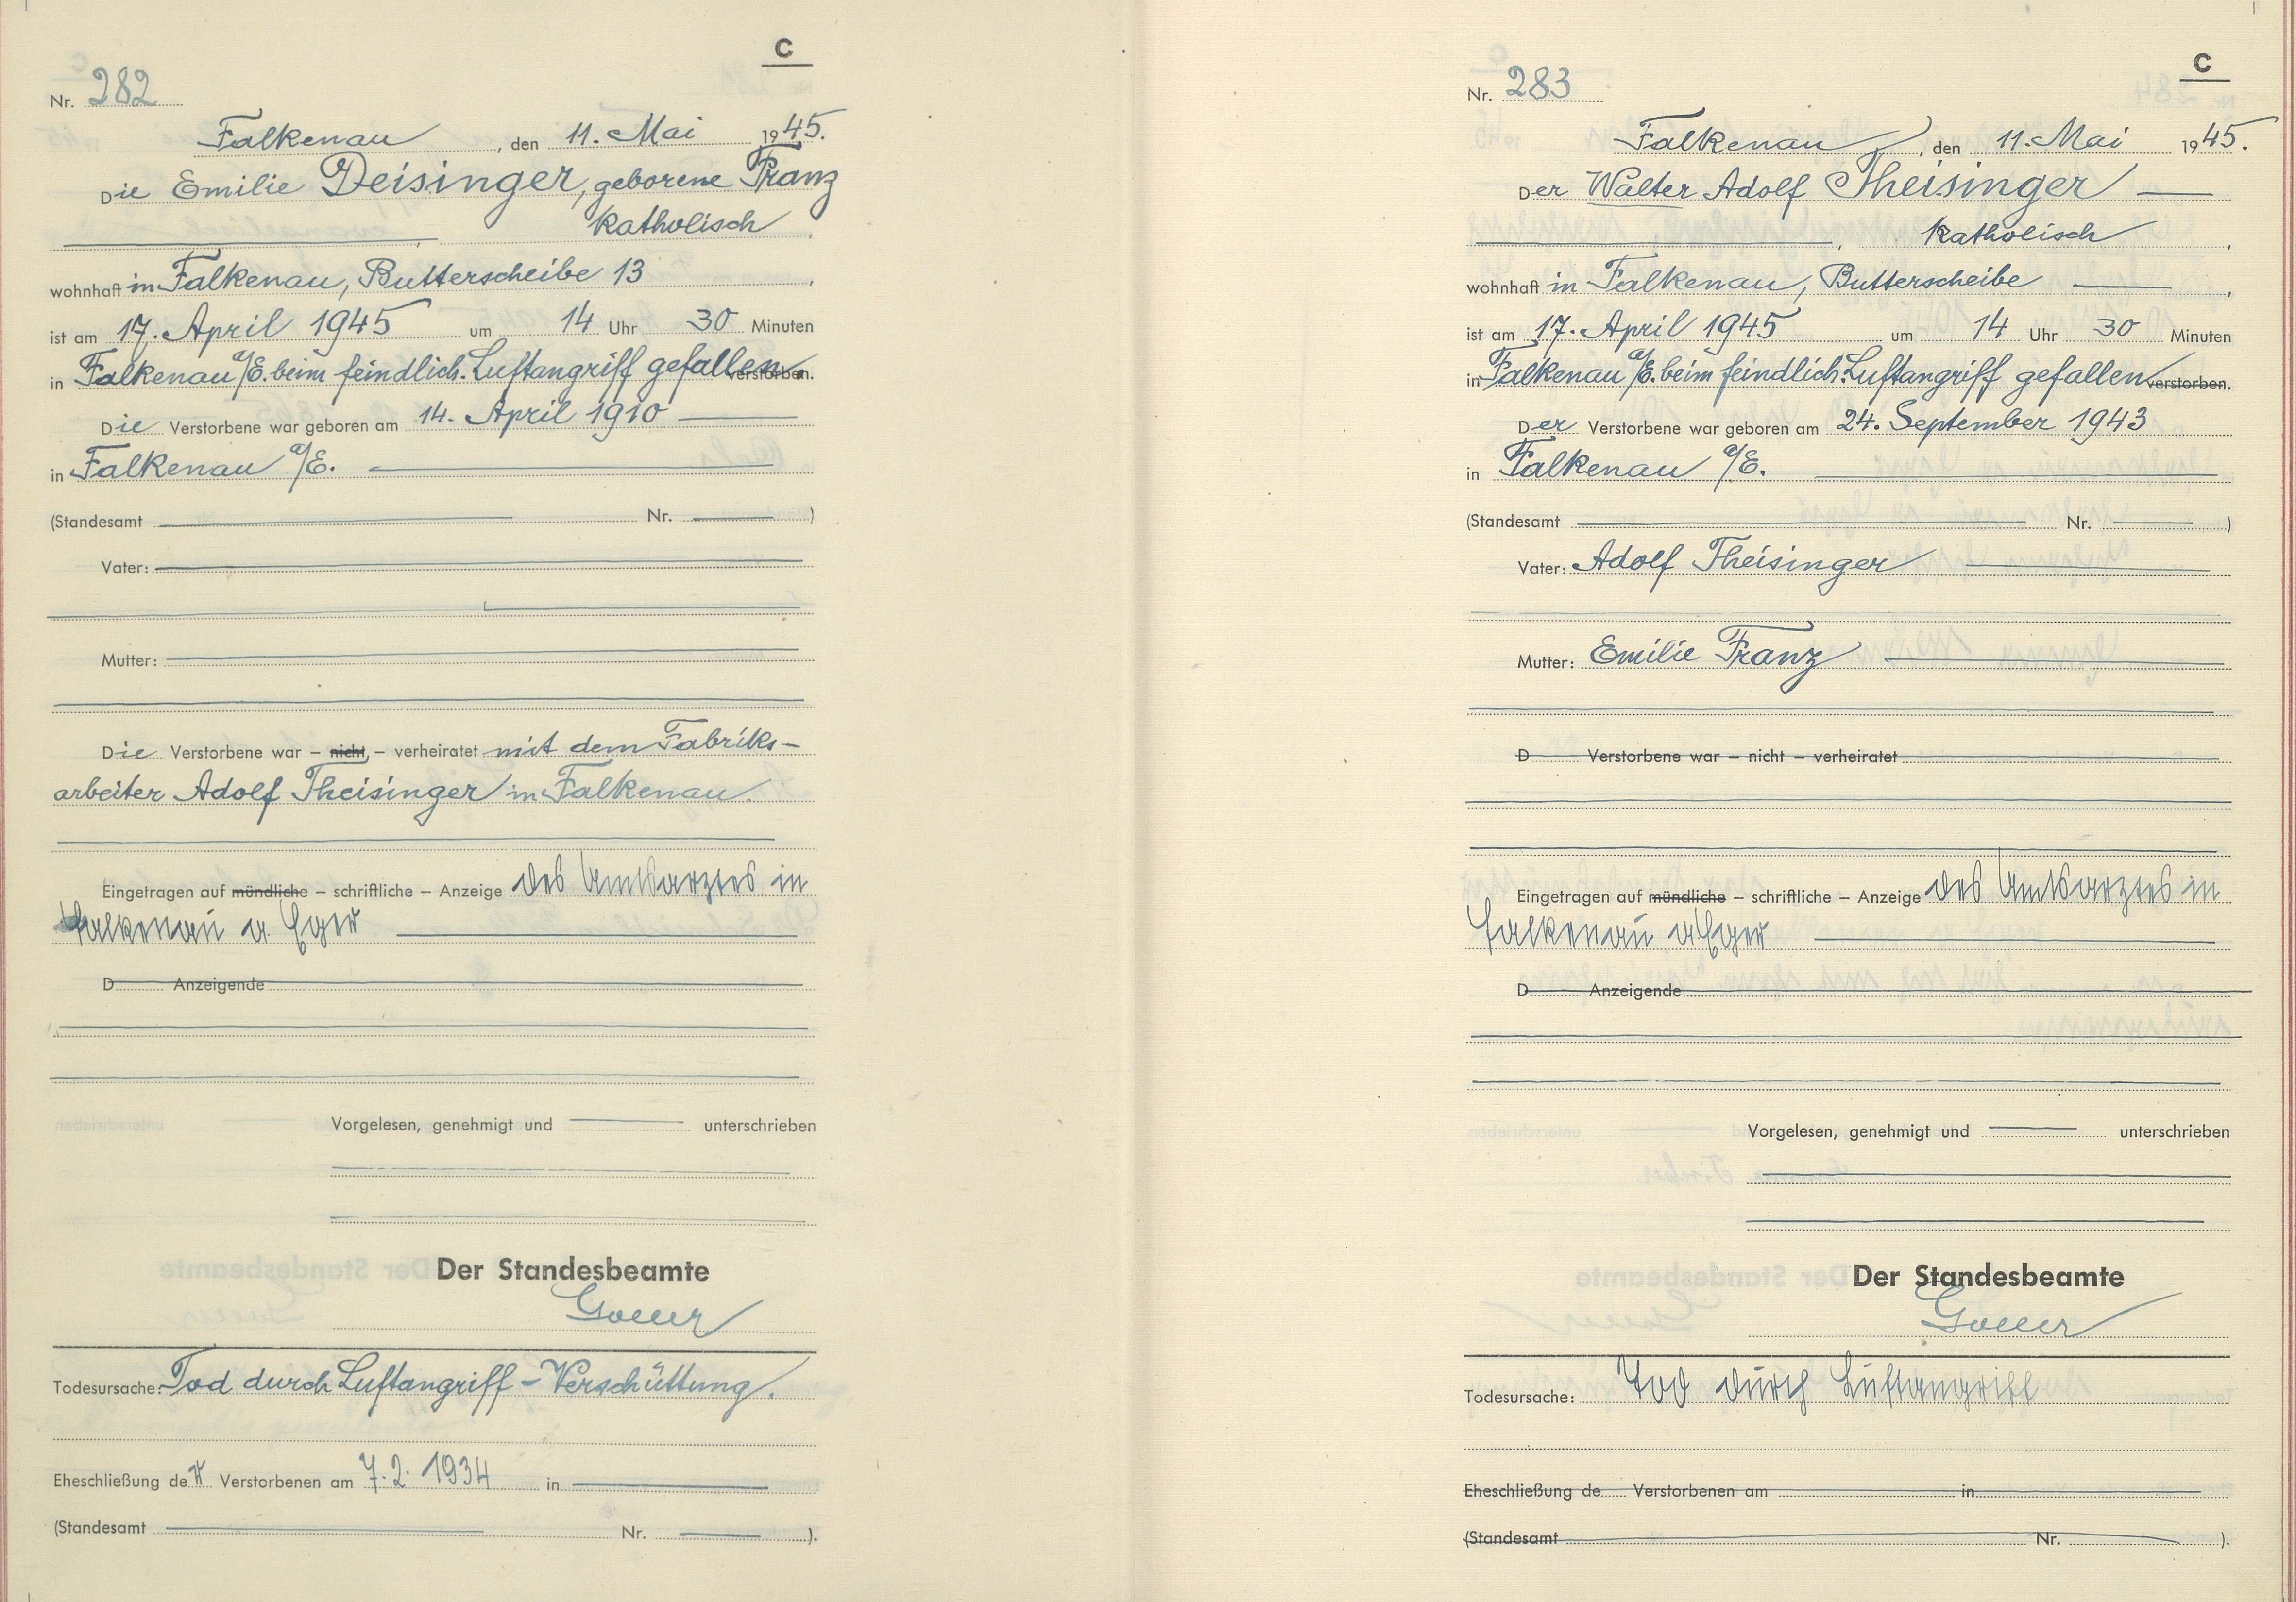 C
Nr. 282
Falkenau, den 11. Mai 1945.
Die Emilie Deisinger, geborene Franz
katholisch,
wohnhaft in Falkenau, Butterscheibe 13,
ist am 17. April 1945 um 14 Uhr 30 Minuten
in Falkenau a/E. beim feindlich. Luftangriff gefallen. verstorben.
Die Verstorbene war geboren am 14. April 1910
in Falkenau a/E.
(Standesamt Nr. )
Vater:
Mutter:
Die Verstorbene war – nicht – verheiratet mit dem Fabriks-
arbeiter Adolf Theisinger in Falkenau.
Eingetragen auf mündliche – schriftliche – Anzeige des Amtsarztes in
Falkenau a. Eger
D Anzeigende
Vorgelesen, genehmigt und unterschrieben
Der Standesbeamte
Todesursache: Tod durch Luftangriff – Verschüttung.
Eheschließung der Verstorbenen am 7. 2. 1934 in
(Standesamt Nr. ).
C
Nr. 283
Falkenau, den 11. Mai 1945.
Der Walter Adolf Theisinger
, katholisch,
wohnhaft in Falkenau, Butterscheibe,
ist am 17. April 1945 um 14 Uhr 30 Minuten
in Falkenau a/E. beim feindlich. Luftangriff gefallen verstorben.
Der Verstorbene war geboren am 24. September 1943
in Falkenau a/E.
(Standesamt Nr. )
Vater: Adolf Theisinger
Mutter: Emilie Franz
D Verstorbene war – nicht – verheiratet
Eingetragen auf mündliche – schriftliche – Anzeige des Amtsarztes in
Falkenau a Eger
D Anzeigende
Vorgelesen, genehmigt und unterschrieben
Der Standesbeamte
Todesursache: Tod durch Luftangriff
Eheschließung de Verstorbenen am in
(Standesamt Nr. ).